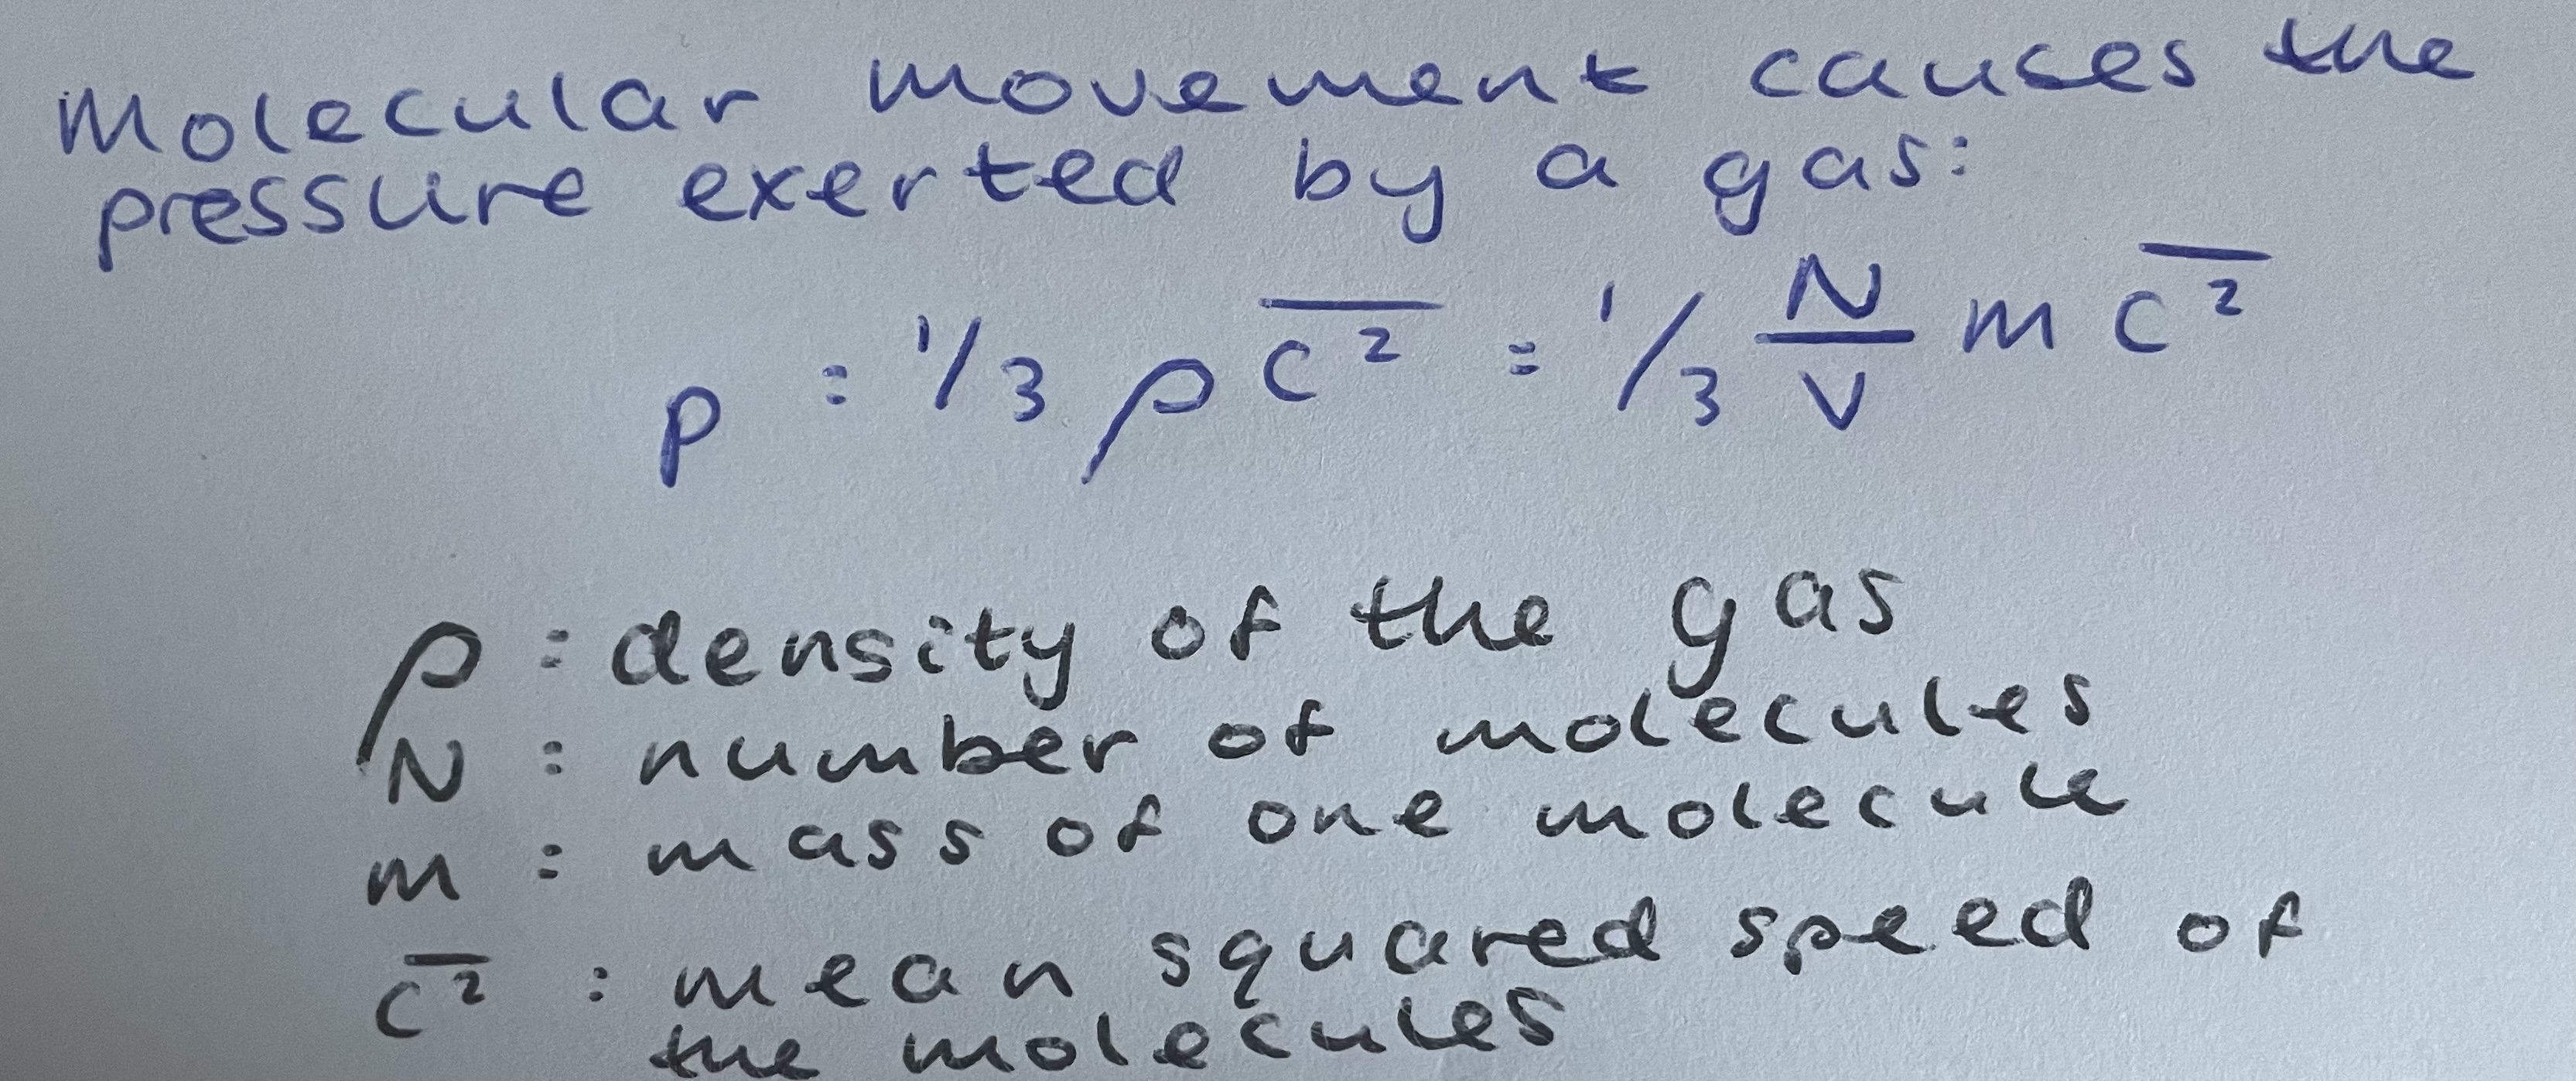 Molecular movement causes the
pressure exerted by a gas:
p = 1/3 ρ c̅²̅ = 1/3 N/V m c̅²̅
ρ : density of the gas
N : number of molecules
m : mass of one molecule
c̅²̅ : mean squared speed of
the molecules